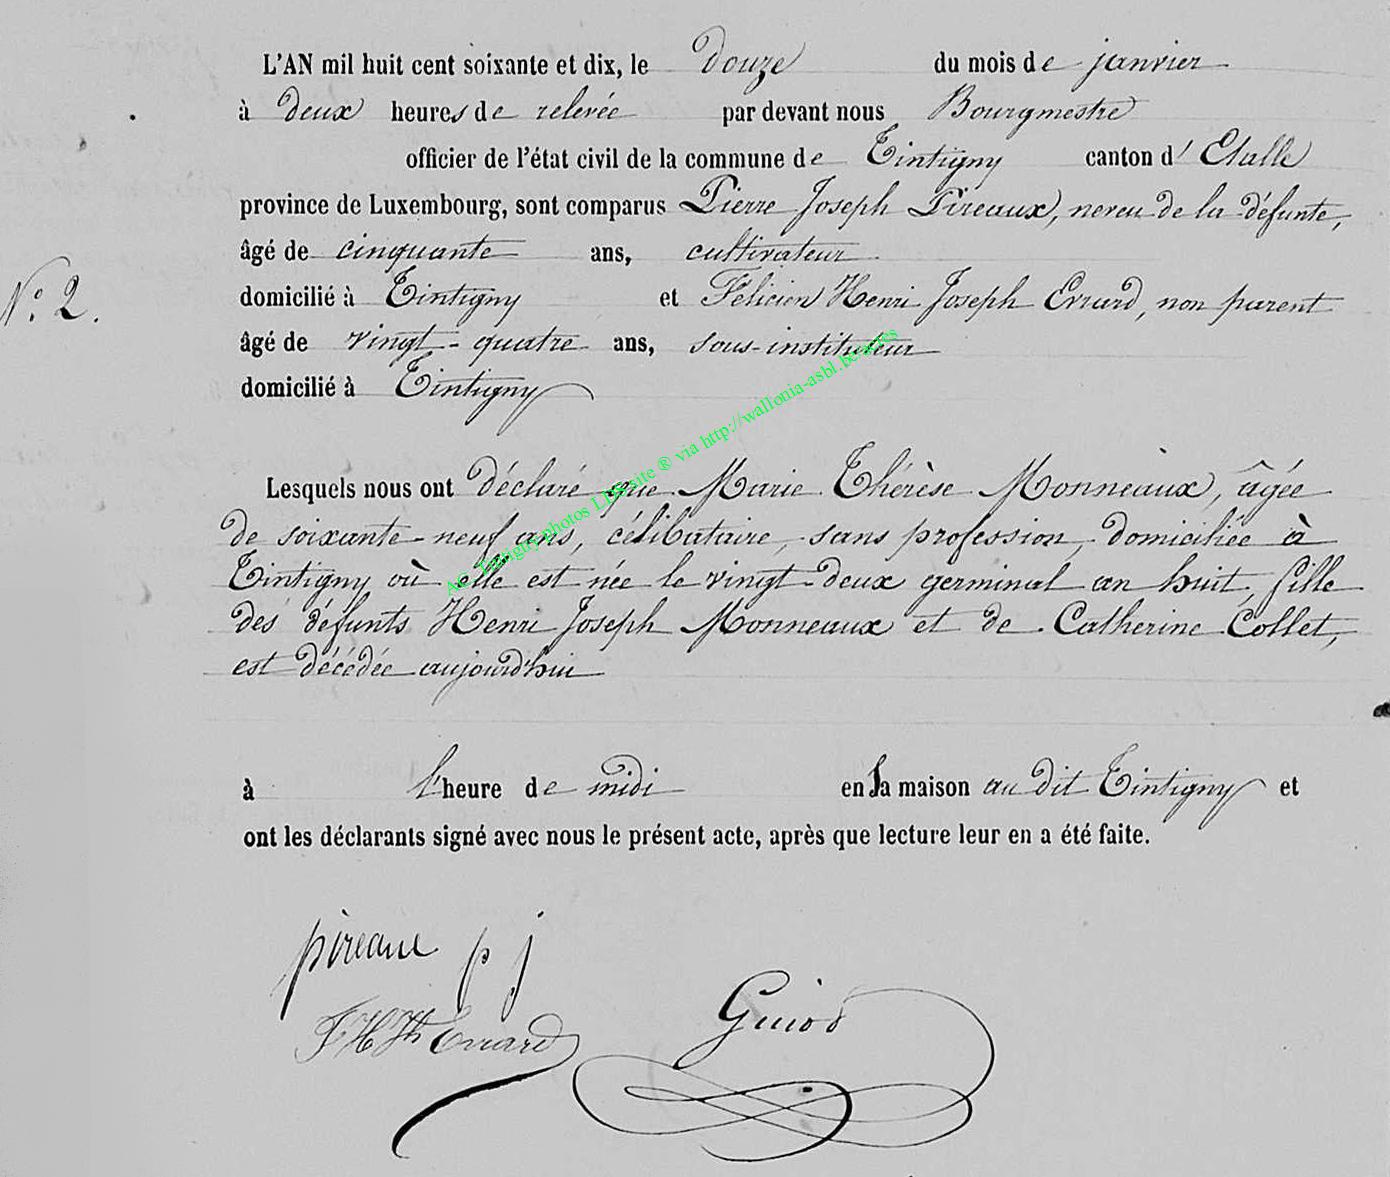 L'AN mil huit cent soixante et dix, le douze du mois de janvier
à deux heures de relevée par devant nous Bourgmestre
officier de l'état civil de la commune de Tintigny canton d' Etalle
province de Luxembourg, sont comparus Pierre Joseph Pireaux, neveu de la défunte,
âgé de cinquante ans, cultivateur
N.° 2.
domicilié à Tintigny et Félicien Henri Joseph Errard, non parent
âgé de vingt-quatre ans, sous-instituteur
domicilié à Tintigny
Lesquels nous ont déclaré que Marie Thérèse Monneaux, âgée
de soixante-neuf ans, célibataire, sans profession, domiciliée à
Tintigny où elle est née le vingt-deux germinal an huit, fille
des défunts Henri Joseph Monneaux et de Catherine Collet,
est décédée aujourd'hui
à l'heure de midi en sa maison au dit Tintigny et
ont les déclarants signé avec nous le présent acte, après que lecture leur en a été faite.
pireaux p j
F H Jh Errard
Guiot
via http://wallonia-asbl.be